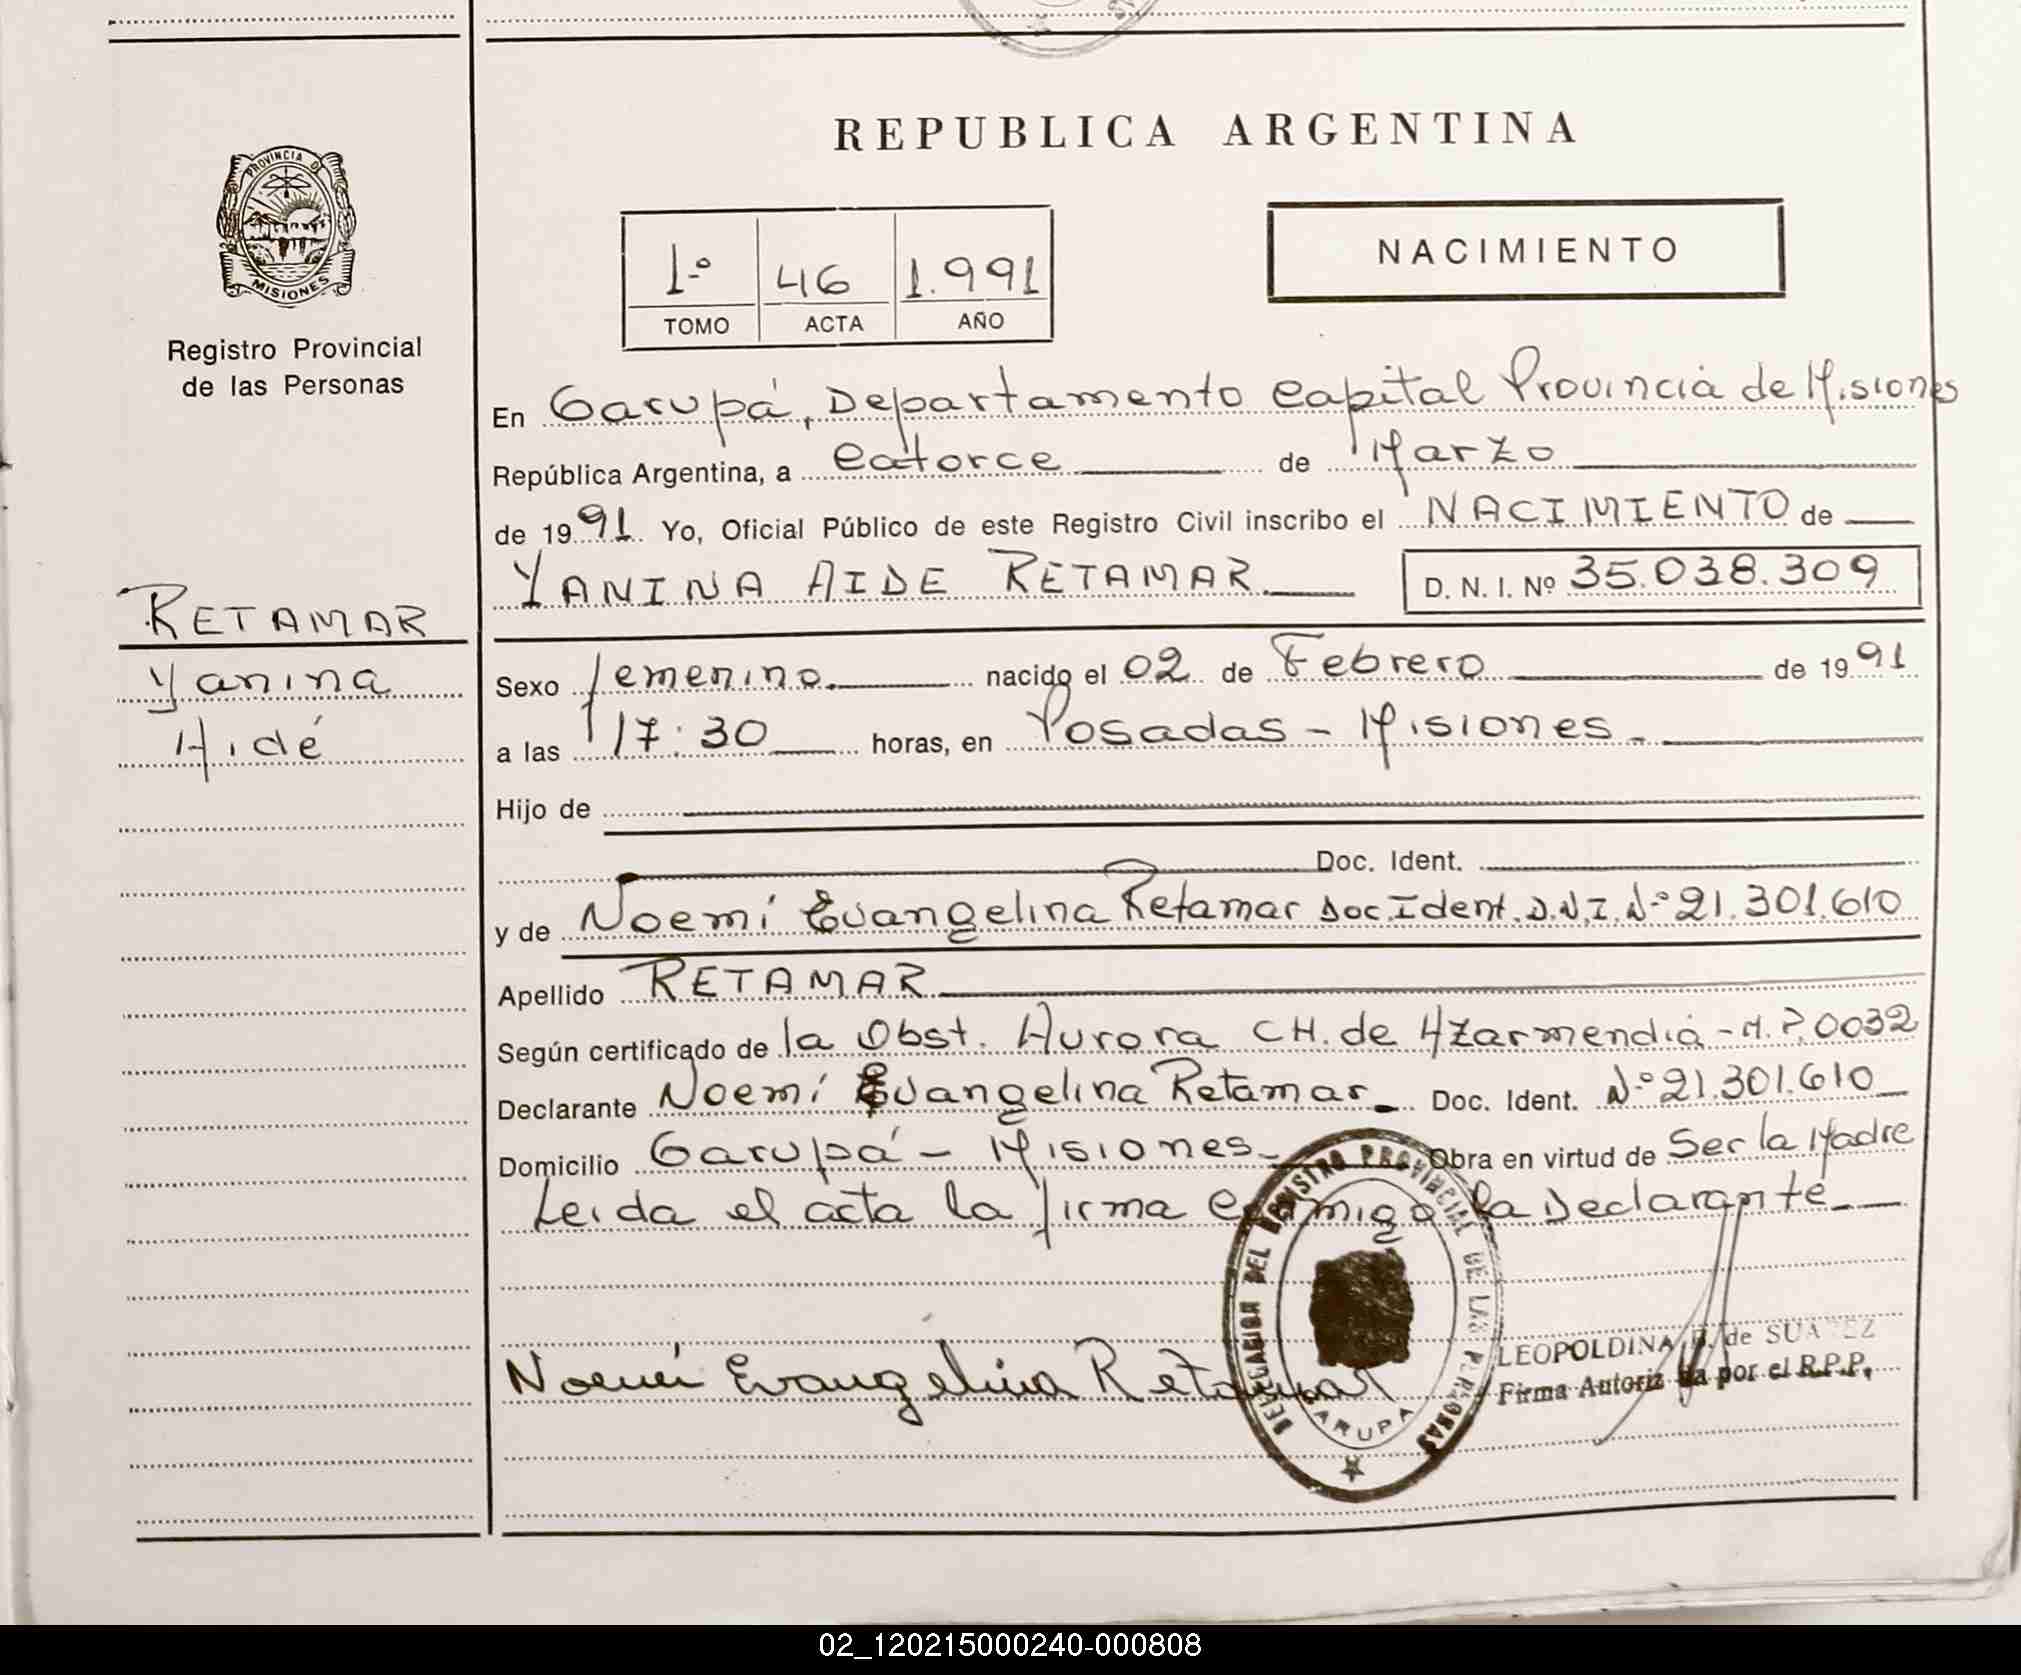 REPUBLICA ARGENTINA
PROVINCIA DE
MISIONES
Registro Provincial
de las Personas
1º 46 1.991
TOMO ACTA AÑO
NACIMIENTO
En Garupá, Departamento Capital Provincia de Misiones
República Argentina, a Catorce de Marzo
de 1991 Yo, Oficial Público de este Registro Civil inscribo el NACIMIENTO de
YANINA AIDE RETAMAR D. N. I. Nº 35.038.309
RETAMAR
Yanina
Aidé
Sexo femenino nacido el 02 de Febrero de 1991
a las 17:30 horas, en Posadas - Misiones.
Hijo de
Doc. Ident.
y de Noemí Evangelina Retamar Doc. Ident. D.N.I. Nº 21.301.610
Apellido RETAMAR
Según certificado de la Obst. Aurora CH. de Azarmendia - M.P. 0032
Declarante Noemí Evangelina Retamar. Doc. Ident. Nº 21.301.610
Domicilio Garupá - Misiones - Obra en virtud de Ser la Madre
Leida el acta la firma conmigo la Declarante
DELEGACION DEL REGISTRO PROVINCIAL DE LAS PERSONAS
GARUPA
Noemí Evangelina Retamar
LEOPOLDINA de SUAREZ
Firma Autorizada por el R.P.P.
02_120215000240-000808